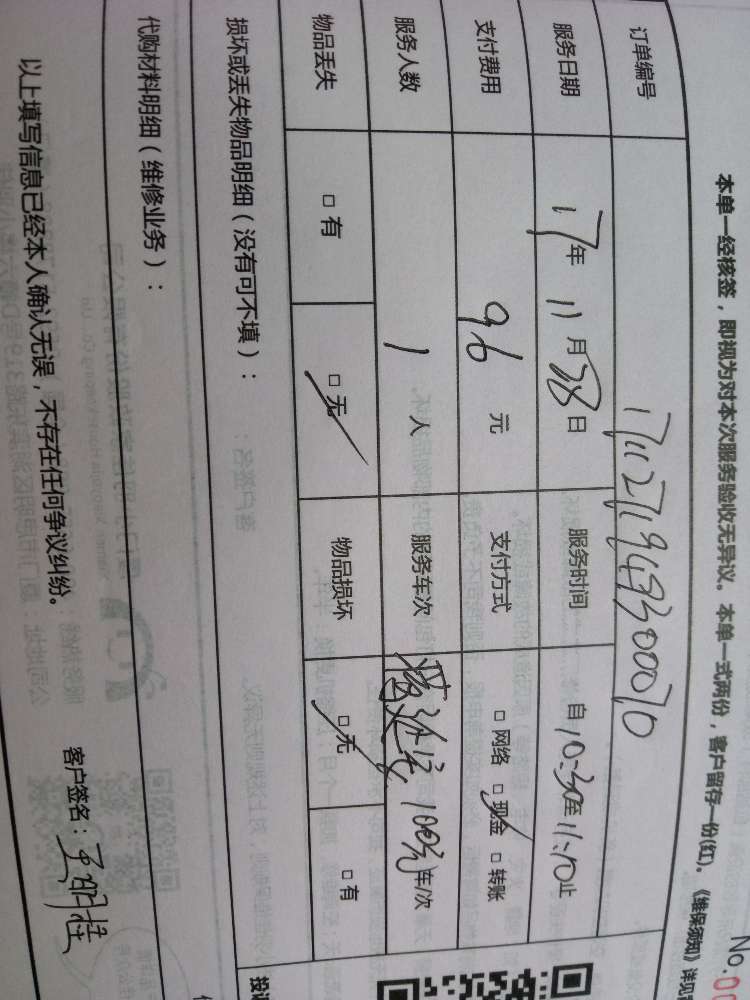 No.00
本单一经核签，即视为对本次服务验收无异议。本单一式两份，客户留存一份(红)。《维保须知》详见
订单编号 17112719493000070
服务日期 17年 11月 28日 服务时间 自10:30至11:10止
支付费用 96 元 支付方式 □ 网络 □ 现金 □ 转账
服务人数 1 人 服务车次 100元 车/次
物品丢失 □ 有 □ 无 物品损坏 □ 无 □ 有
损坏或丢失物品明细（没有可不填）：
代购材料明细（维修业务）：
以上填写信息已经本人确认无误，不存在任何争议纠纷。
客户签名：
投诉